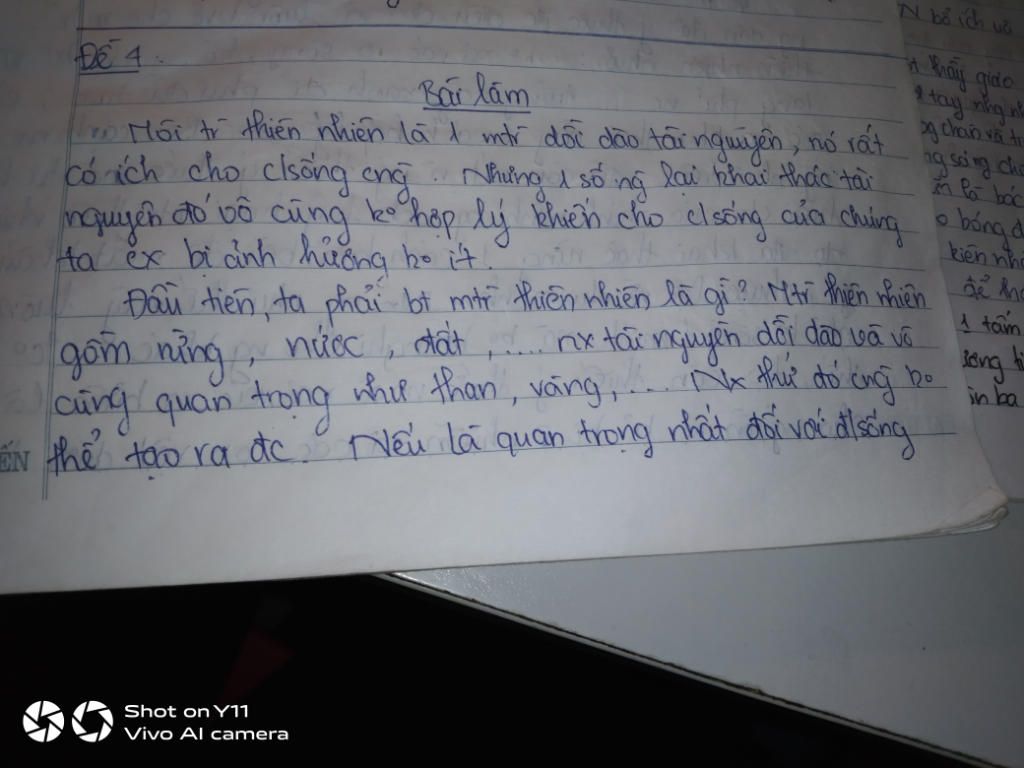 N bổ ích vô
Đề 4.
Bài làm
Môi tr thiên nhiên là 1 mtr dồi dào tài nguyên, nó rất
có ích cho clsống cng. Nhưng 1 số ng lại khai thác tài
nguyên đó vô cùng ko hợp lý khiến cho clsống của chúng
ta ex bị ảnh hưởng ko ít.
Đầu tiên, ta phải bt mtr thiên nhiên là gì? Mtr thiên nhiên
gồm rừng, nước, đất, .... nx tài nguyên dồi dào và vô
cùng quan trọng như than, vàng, ... Nx thứ đó cng ko
thể tạo ra đc. Nếu là quan trọng nhất đối với đ/sống
thầy giáo
1 tay
chan và tr
sóng ch
là bóc
bóng đ
kiên nh
để th
1 tấm
ương
ba
ẾN
Shot on Y11
Vivo AI camera